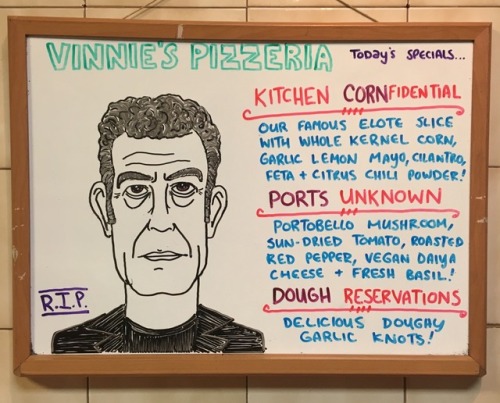 VINNIE'S PIZZERIA
TODAY'S SPECIALS...
KITCHEN CORNFIDENTIAL
OUR FAMOUS ELOTE SLICE
WITH WHOLE KERNEL CORN,
GARLIC LEMON MAYO, CILANTRO,
FETA + CITRUS CHILI POWDER!
PORTS UNKNOWN
PORTOBELLO MUSHROOM,
SUN-DRIED TOMATO, ROASTED
RED PEPPER, VEGAN DAIYA
CHEESE + FRESH BASIL!
DOUGH RESERVATIONS
DELICIOUS DOUGHY
GARLIC KNOTS!
R.I.P.